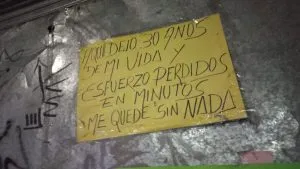 AQUI DEJO 30 AÑOS
DE MI VIDA Y
ESFUERZO PERDIDOS
EN MINUTOS
ME QUEDE SIN NADA